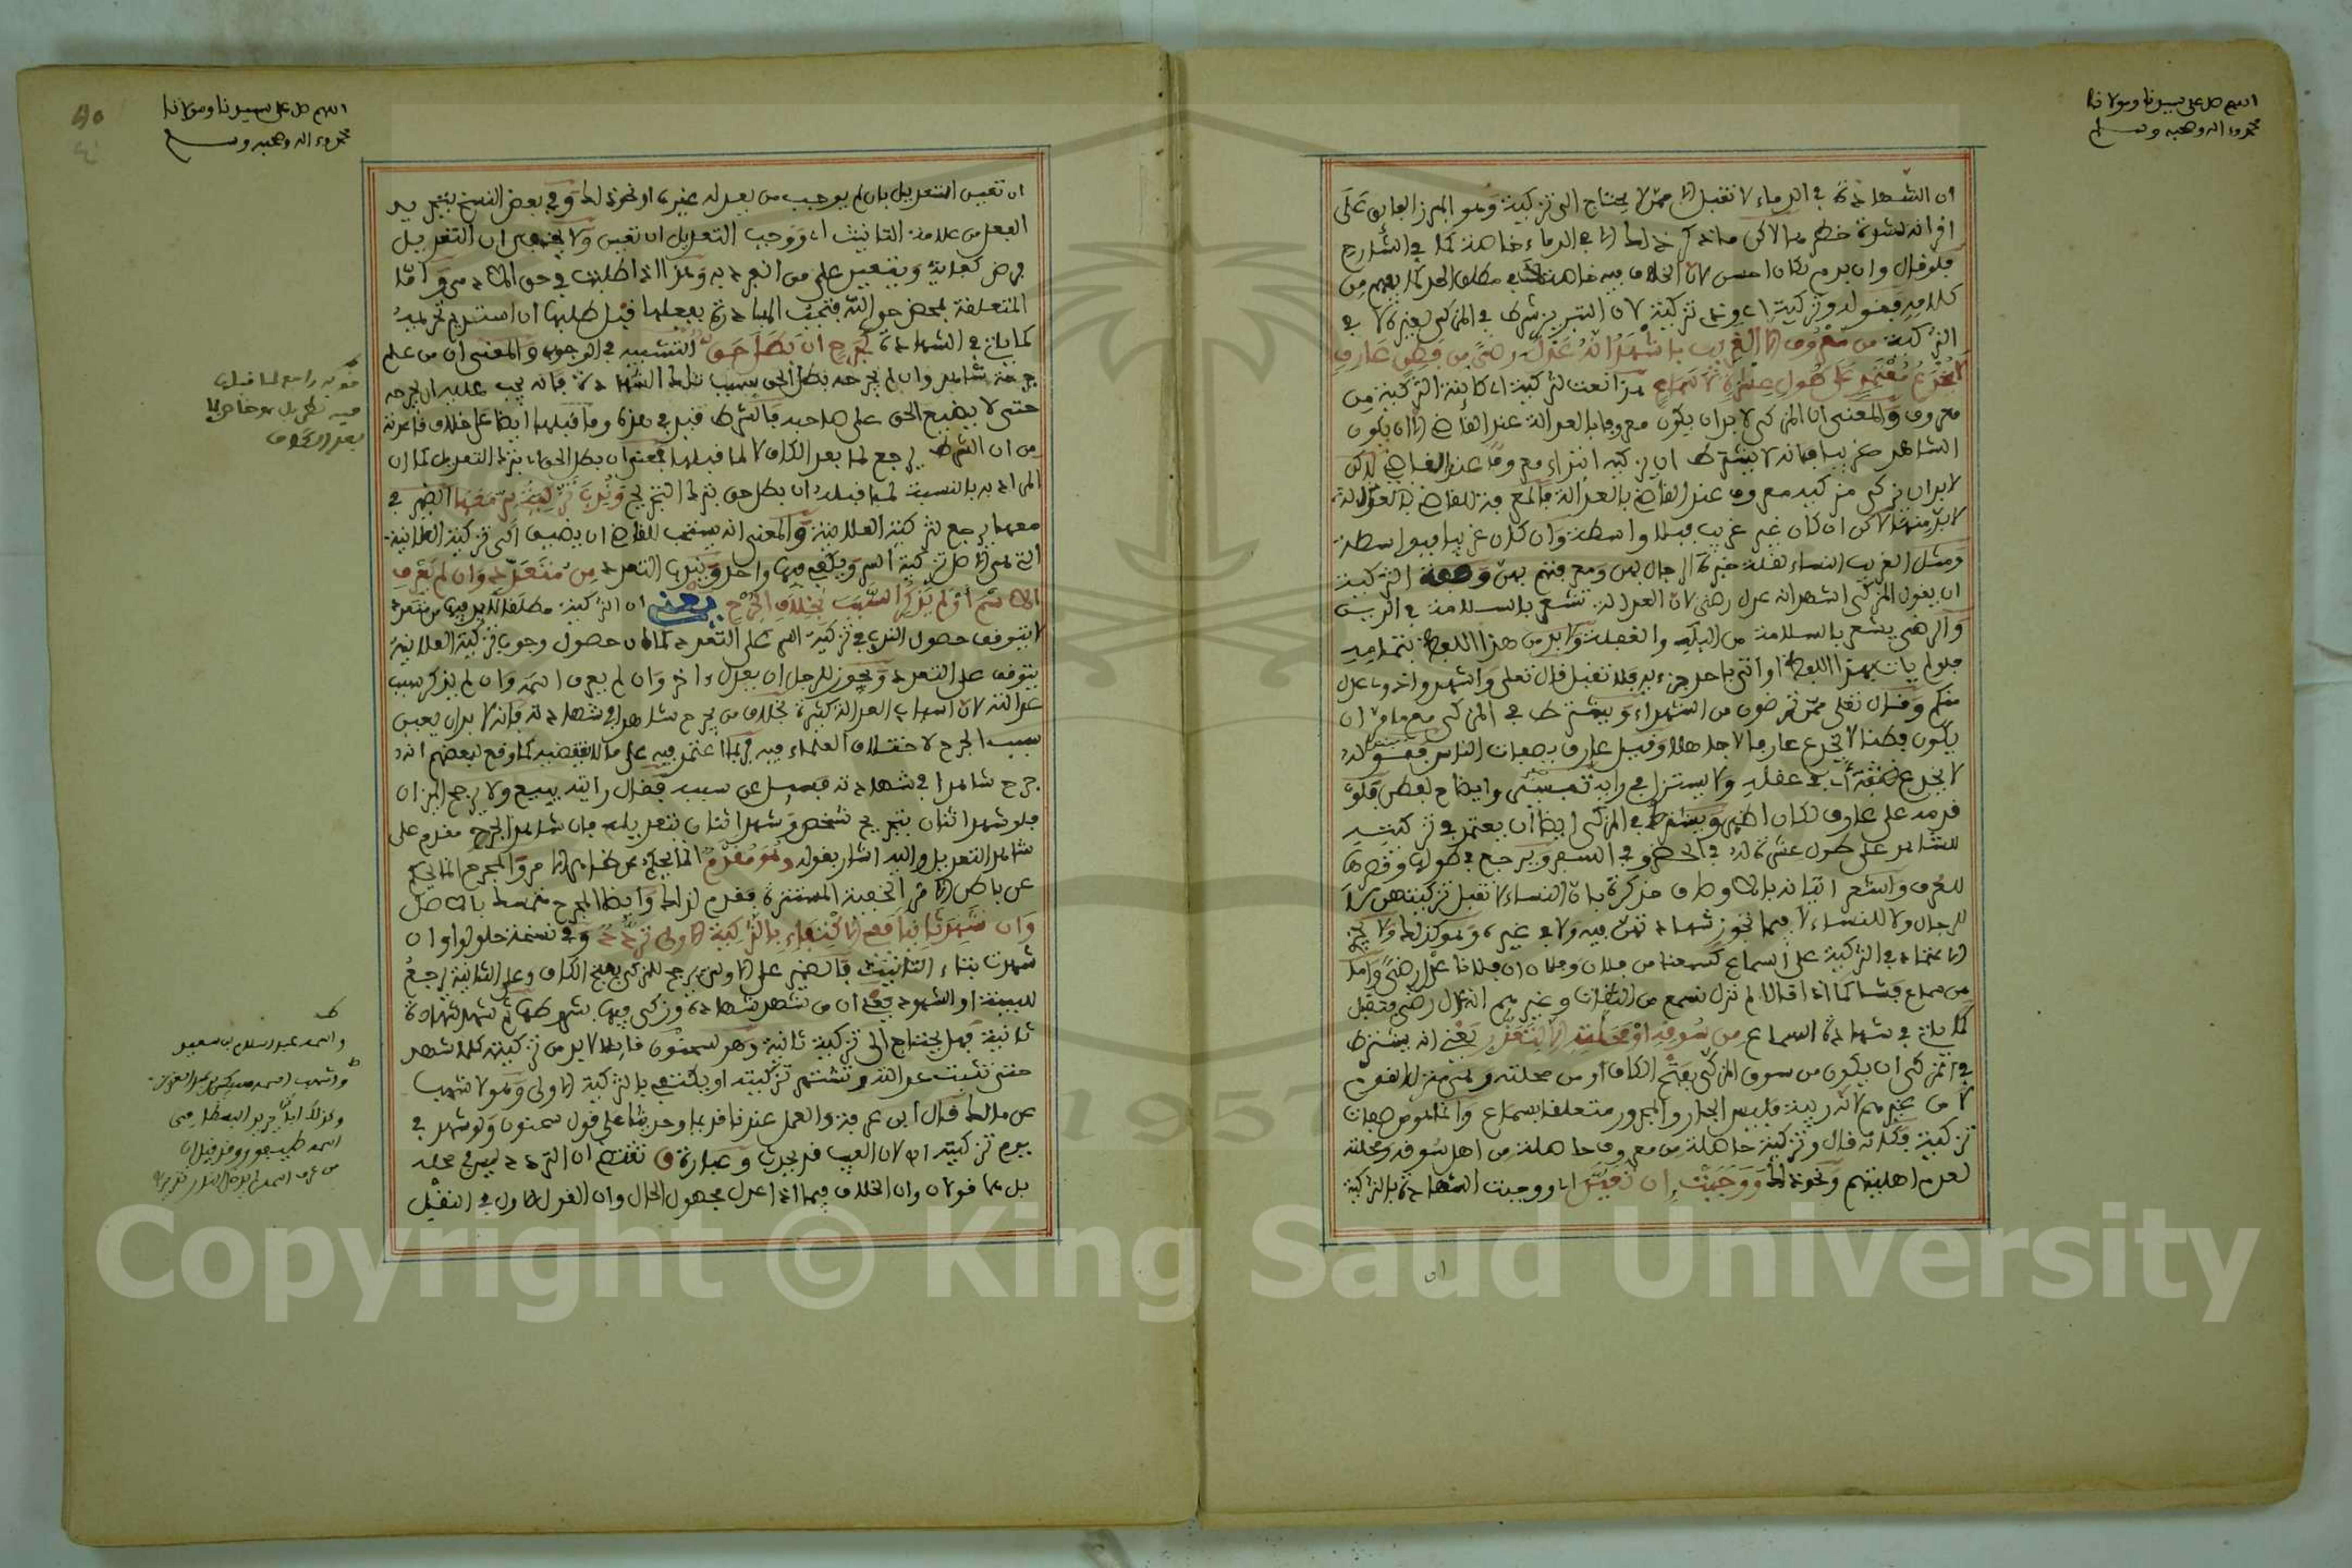 اللهم صل على سيدنا ومولانا
محمد وءاله وصحبه وسلم
ان الشهادة في الدماء لا تقبل الا ممن لا يحتاج الى تزكية وهو المبرز الفايق على
اقرانه لشدة خطرها لاكن ما ذكر في الدماء خاصة كما في الشارح
فلو قال وان بدم لكان احسن لان الخلاف فيه خاصة في مطلق الحد كما يفهم من
كلامه فقوله وتزكية اي وفي تزكية لان التبريز شرط في المزكي لغيره لا في
التزكية من معروف الا الغريب باشهد انه عدل رضى من فطن عارف
لا يخدع معتمد على طول عشرة لا سماع هذا نعت لتزكية اي كاينة التزكية من
معروف والمعنى ان المزكي لا بد ان يكون معروفا بالعدالة عند القاضي الا ان يكون
الشاهد غريبا فانه لا يشترط ان يزكيه ابتداء معروف عند القاضي لكن
لا بد ان يزكي مزكيه معروف عند القاضي بالعدالة فالمعرفة للقاضي بالعدالة
لا بد منها لاكن ان كان غير غريب فبلا واسطة وان كان غريبا فبواسطة
ومثل الغريب النساء لقلة خبرة الرجال بهن ومعرفتهم بهن وصفة التزكية
ان يقول المزكي اشهد انه عدل رضى لان العدالة تشعر بالسلامة في الدين
والرضى يشعر بالسلامة من البله والغفلة ولا بد من هذا اللفظ بتمامه
فلو لم يات بهذا اللفظ او اتى باحد جزءيه فلا تقبل قال تعلى واشهدوا ذوي عدل
منكم وقال تعلى ممن ترضون من الشهداء ويشترط في المزكي مع ما مر ان
يكون فطنا لا يخدع عارفا لا جاهلا وقيل عارف بصفات الناس فقوله
لا يخدع صفة اي في عقله ولا يستزل في رايه تفسير وايضاح لفطن فلو
قدمه على عارف لكان اظهر ويشترط في المزكي ايضا ان يعتمد في تزكيته
للشاهد على طول عشرته له في الحضر وفي السفر ويرجع في طولها وقصرها
للعرف واشعر اتيانه بالاوصاف مذكرة بان النساء لا تقبل تزكيتهن لا
للرجال ولا للنساء لا فيما تجوز شهادتهن فيه ولا في غيره وهو كذلك ولا يجوز
الاعتماد في التزكية على السماع كسمعنا من فلان وفلان ان فلانا عدل رضى واما
من سماع فشا كما اذا قالا لم نزل نسمع من الثقات وغيرهم انه عدل رضى فتقبل
كما ياتي في شهادة السماع من سوقه او محلته الا لتعذر يعني انه يشترط
في المزكي ان يكون من سوق المزكى بفتح الكاف او من محلته
لا من غيرهم لانه ريبة فليس الجار والمجرور متعلقا بسماع وانما هو من صفات
تزكية فكانه قال وتزكية حاصلة من معروف حاصلة من اهل سوقه ومحلته
لعدم اهليتهم ونحو ذلك ووجبت ان تعين اي ووجبت الشهادة بالتزكية
ان
اللهم صل على سيدنا ومولانا
محمد وءاله وصحبه وسلم
ان تعين التعديل بان لم يوجد من يعدله غيره او نحو ذلك وفي بعض النسخ بتجريد
الفعل من علامة التانيث اي ووجب التعديل ان تعين ولا يخفى ان التعديل
فرض كفاية ويتعين على من انفرد به وهذا اذا طلبت في حق الادمي واما
المتعلقة بمحض حق الله فتجب المبادرة بفعلها قبل طلبها ان استديم تحريمه
كما ياتي في الشهادة كجرح ان بطل حق التشبيه في الوجوب والمعنى ان من علم
جرحة شاهد وان لم يجرحه بطل الحق بسبب تلك الشهادة فانه يجب عليه ان يجرحه
حتى لا يضيع الحق على صاحبه فالشرط قيد في هذه وما قبلها ايضا على خلاف قاعدته
من ان الشرط يرجع لما بعد الكاف لا لما قبلها فمعنى ان بطل الحق اي بترك التعديل كما ان
المراد به بالنسبة لما قبله ان بطل حق بترك التجريح وندب تزكية سر معها الضمير في
معها يرجع لتزكية العلانية والمعنى انه يستحب للقاضي ان يضيف الى تزكية العلانية
التي هي الاصل تزكية السر ويكفي فيها واحد وندب التعدد من متعدد وان لم يعرف
الاسم او لم يذكر السبب بخلاف الجرح يعني ان التزكية مطلقا لا بد فيها من متعدد
لا يتوقف حصول الندب في تزكية السر على التعدد كما ان حصول وجوب تزكية العلانية
يتوقف على التعدد ويجوز للرجل ان يعدل ءاخر وان لم يعرف اسمه وان لم يذكر سبب
عدالته لان اسباب العدالة كثيرة بخلاف من يجرح شاهدا في شهادته فانه لا بد ان يبين
سبب الجرح لاختلاف العلماء فيه فربما اعتمد فيه على ما لا يقتضيه كما وقع لبعضهم انه
جرح شاهدا في شهادته فسئل عن سببه فقال رايته يبيع ولا يرجح الميزان
فلو شهد اثنان بتجريح شخص وشهد اثنان بتعديله فان شاهد الجرح مقدم على
شاهد التعديل واليه اشار بقوله وهو مقدم
عن باطن الامر الخفية المستترة فقدم لذلك وايضا المجرح متمسك بالاصل
وان شهد ثانيا ففي الاكتفاء بالتزكية الاولى تردد وفي نسخة حلولو وان
شهدت بتاء التانيث فالضمير على الاولى يرجع للمزكى بفتح الكاف وعلى الثانية يرجع
للبينة او الشهود يعني ان من شهد شهادة وزكي فيها بشروطها ثم شهد شهادة
ثانية فهل يحتاج الى تزكية ثانية وهو لسحنون قايلا لا بد من تزكيته كلما شهد
حتى تثبت عدالته وتشتهر تزكيته او يكتفى بالتزكية الاولى وهو لاشهب
عن مالك قال ابن عرفة والعمل عندنا قديما وحديثا على قول سحنون ولو شهد في
يوم تزكيته اي لان الغيب قد يحدث وعبارة ق تقتضي ان التردد ليس في محله
بل هما قولان وان الخلاف فيما اذا عدل مجهول الحال وان القول الاول في النقل
Copyright © King Saud University
1957